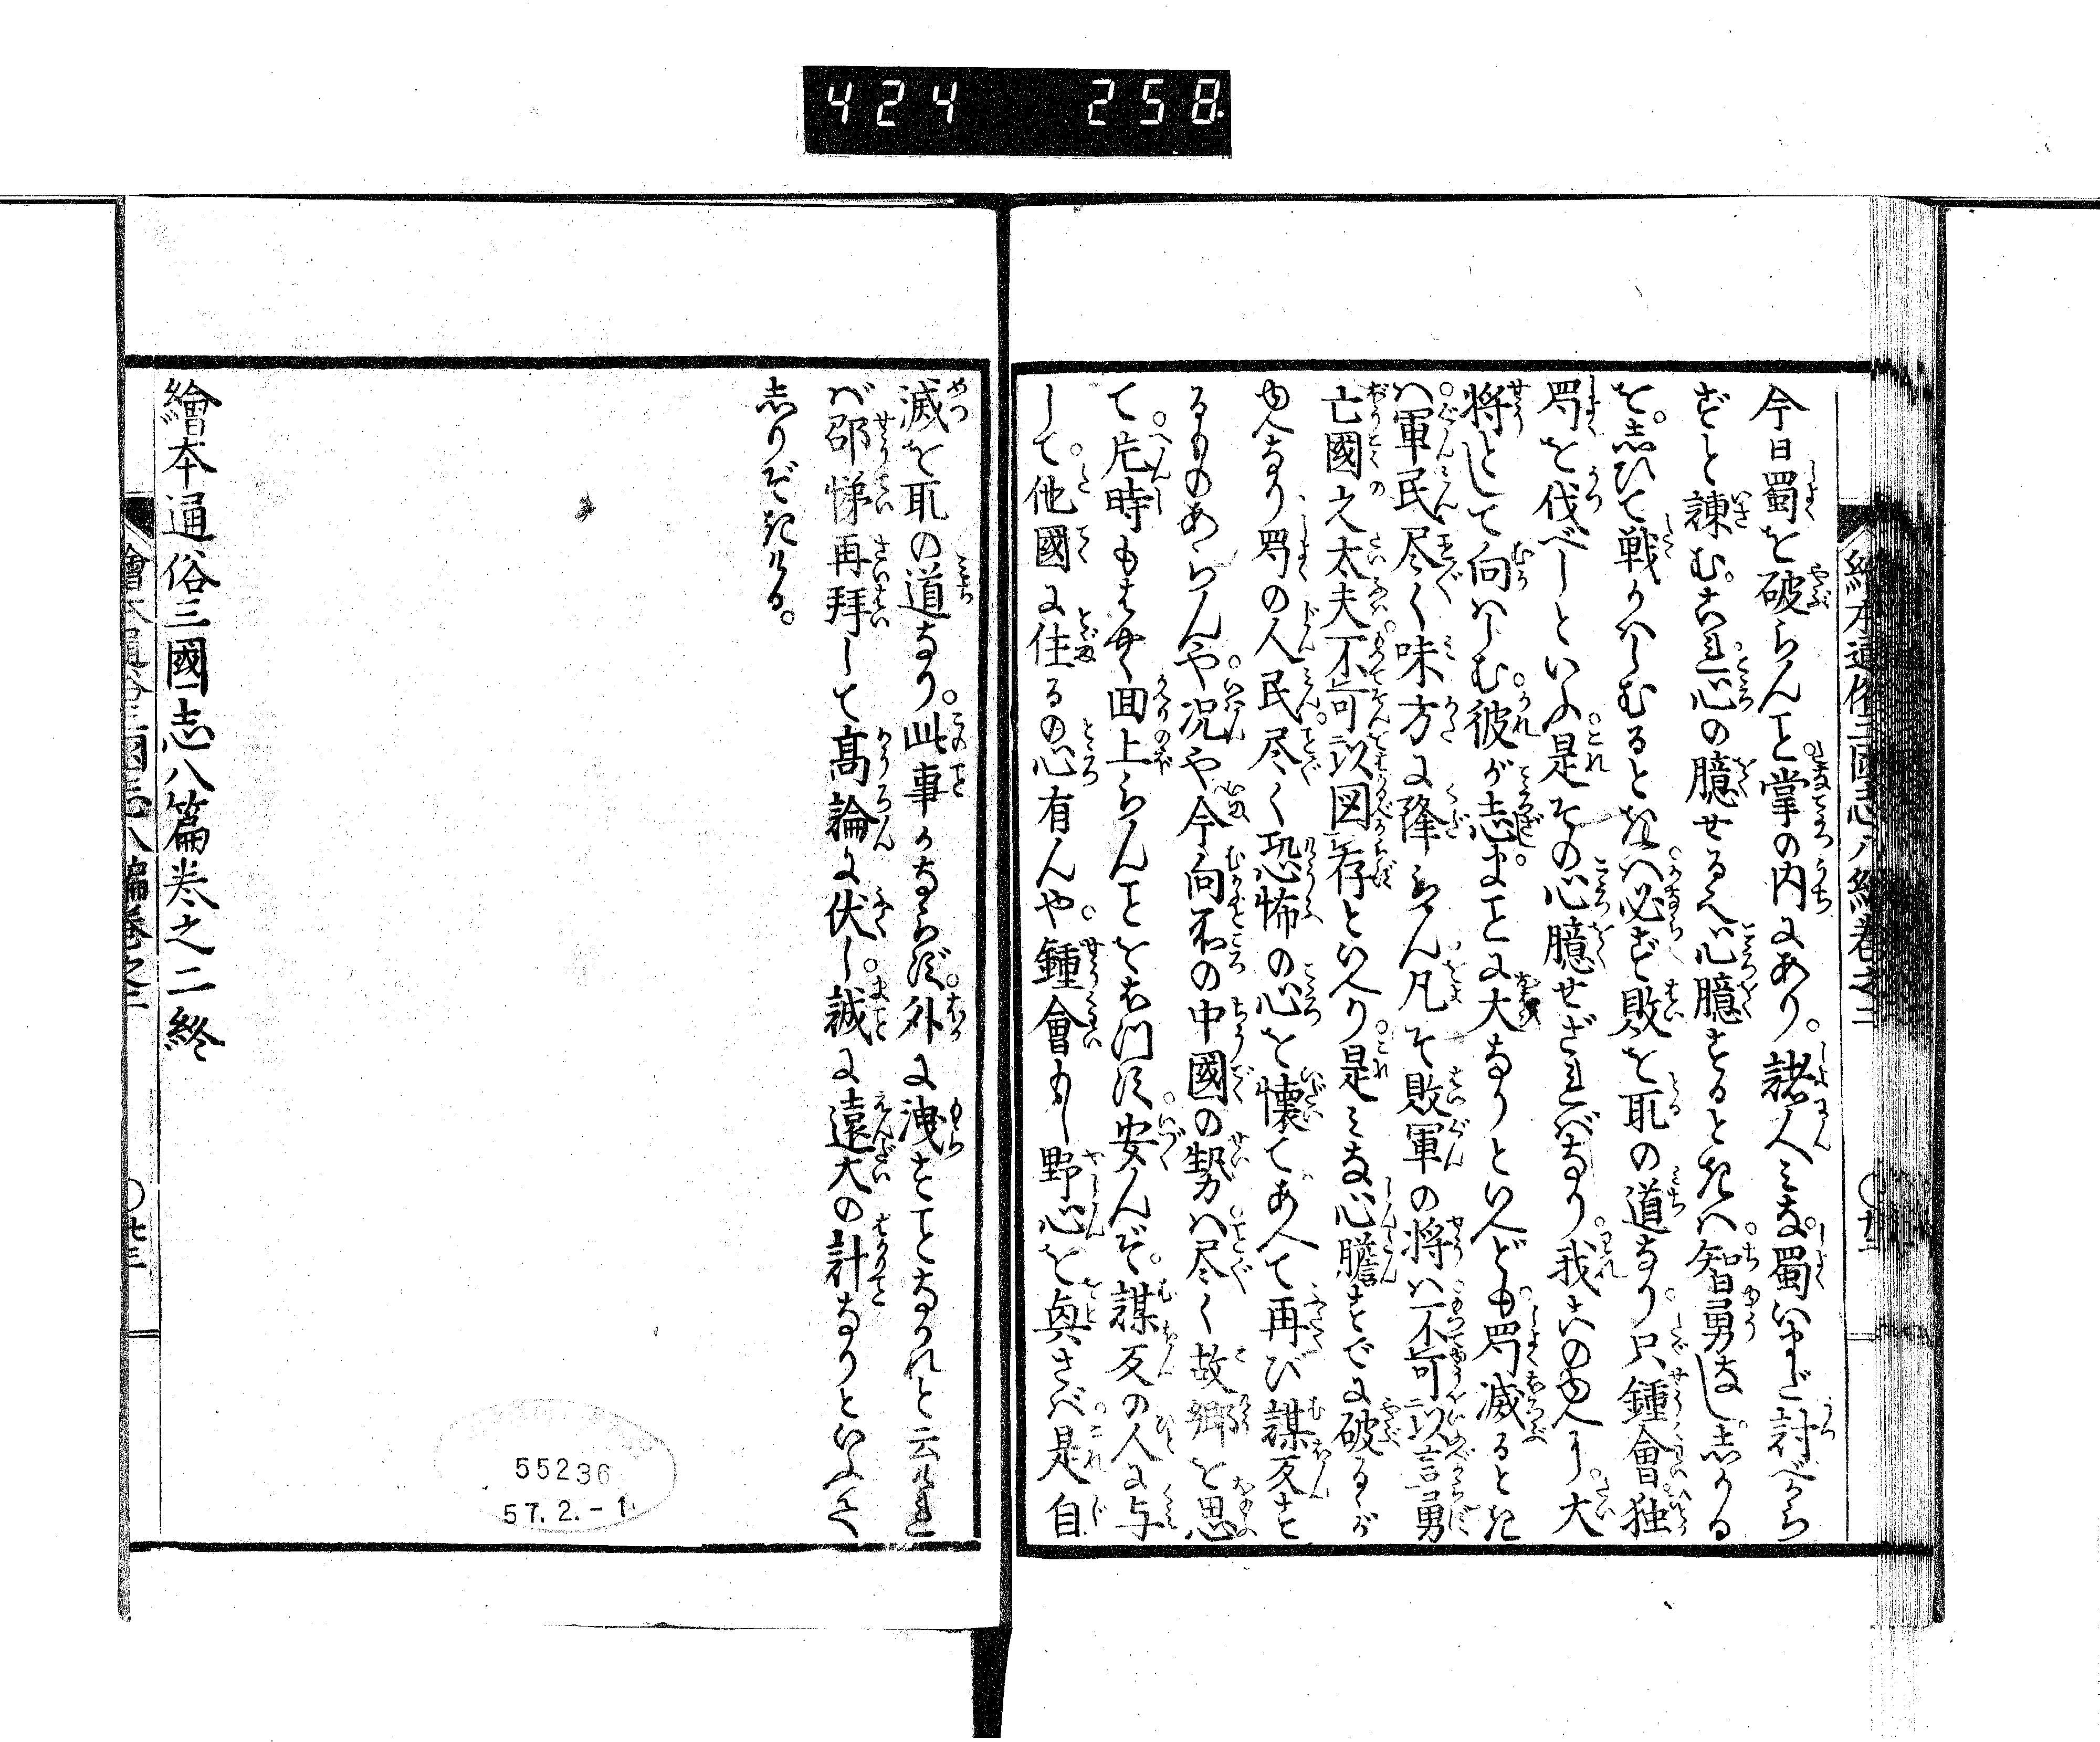 424 258
今日蜀を破らんヿ掌の内にあり。諸人みな。蜀いまだ討べから
ずと諫む。これ心の臆せるなり心臆するときハ智勇なし。志かる
を。志ひて戦かハしむるときハ必ず敗を取の道なり。只鍾會独
蜀を伐べしといふ是その心臆せざれバなり。我このゆへに。大
将として向ハしむ。彼が志。まヿに大なりといへども蜀滅るとき
ハ。軍民尽く味方に降らん凡そ敗軍の将ハ不可以言勇
亡國之太夫。不可以図存といへり。是みな心膽すでに破るが
ゆへなり蜀の人民。尽く恐怖の心を懐てあへて再び謀反す
るものあらんや。况や今向ふ所の中國の勢ハ尽く故郷を思
て。片時もはやく回上らんヿをおもふ。安んぞ。謀反の人に与
して。他國に住るの心有んや。鍾會もし野心を輿さバ是自
滅を取の道なり。此事かならず。外に洩すヿなかれと云けれ
バ邵悌再拜して高論に伏し。誠に遠大の計なりといふて
志りぞきける。
繪本通俗三國志八篇巻之二終
繪本通俗三國志八編巻之二
〇廿三
55236
57.2.-1.